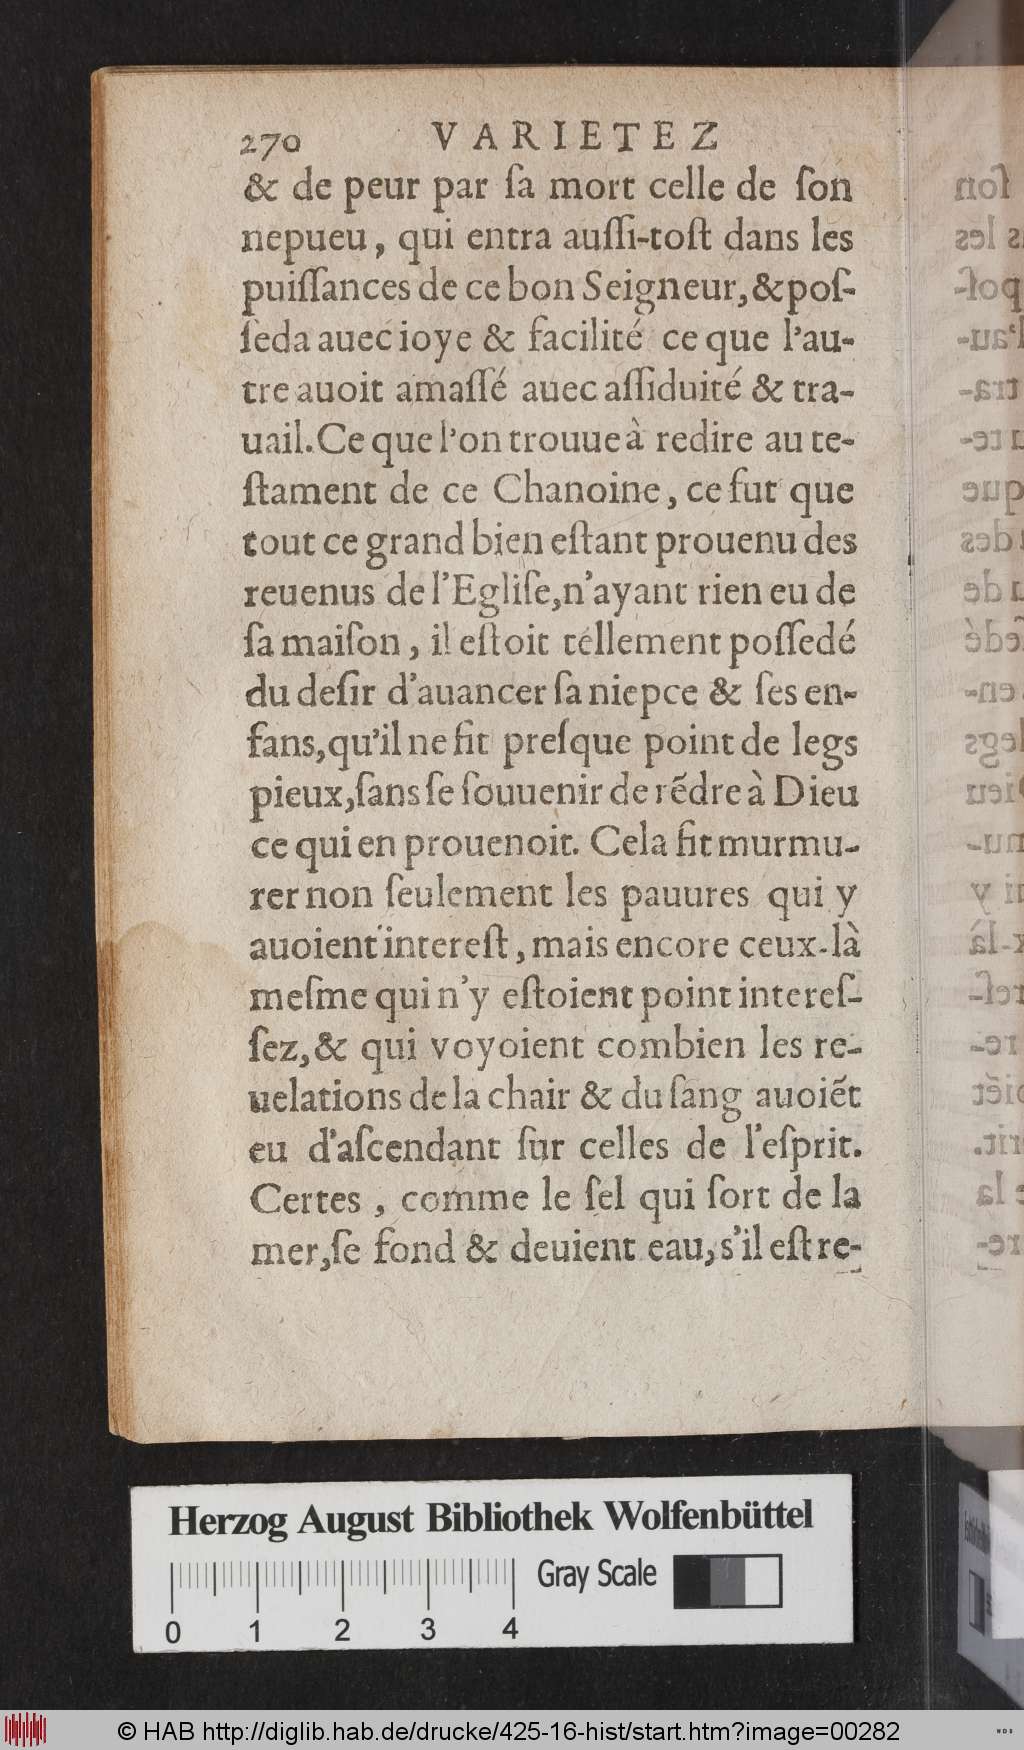 270 VARIETEZ
& de peur par ſa mort celle de ſon
nepueu, qui entra auſſi-toſt dans les
puiſſances de ce bon Seigneur, & poſ-
ſeda auec ioye & facilité ce que l'au-
tre auoit amaſſé auec aſſiduité & tra-
uail. Ce que l'on trouue à redire au te-
ſtament de ce Chanoine, ce fut que
tout ce grand bien eſtant prouenu des
reuenus de l'Egliſe, n'ayant rien eu de
ſa maiſon, il eſtoit tellement poſſedé
du deſir d'auancer ſa niepce & ſes en-
fans, qu'il ne fit preſque point de legs
pieux, ſans ſe ſouuenir de rẽdre à Dieu
ce qui en prouenoit. Cela fit murmu-
rer non ſeulement les pauures qui y
auoient intereſt, mais encore ceux-là
meſme qui n'y eſtoient point intereſ-
ſez, & qui voyoient combien les re-
uelations de la chair & du ſang auoiẽt
eu d'aſcendant ſur celles de l'eſprit.
Certes, comme le ſel qui ſort de la
mer, ſe fond & deuient eau, s'il eſt re-
Herzog August Bibliothek Wolfenbüttel
Gray Scale
0 1 2 3 4
© HAB http://diglib.hab.de/drucke/425-16-hist/start.htm?image=00282